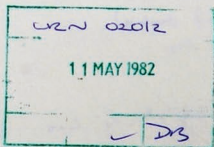 URN 02012
11 MAY 1982
✓ DB